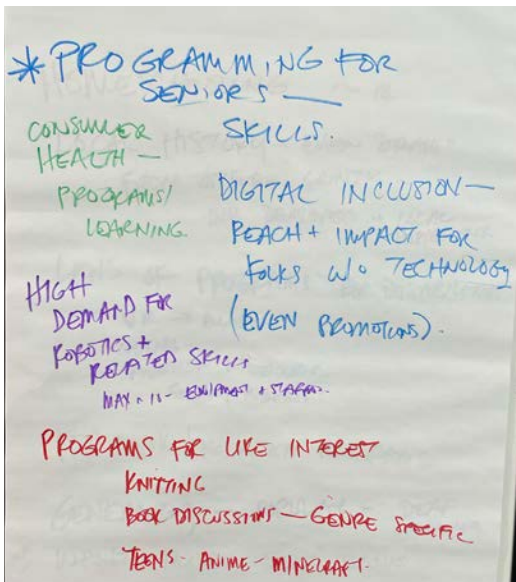 * PROGRAMMING FOR
SENIORS —
SKILLS.
CONSUMER
HEALTH —
PROGRAMS/
LEARNING.
DIGITAL INCLUSION —
REACH + IMPACT FOR
FOLKS W/O TECHNOLOGY
(EVEN PROMOTIONS).
HIGH
DEMAND FOR
ROBOTICS +
RELATED SKILLS
MAX = 15 - EQUIPMENT + STAFFING.
PROGRAMS FOR LIKE INTEREST
KNITTING
BOOK DISCUSSIONS — GENRE SPECIFIC
TEENS - ANIME - MINECRAFT.